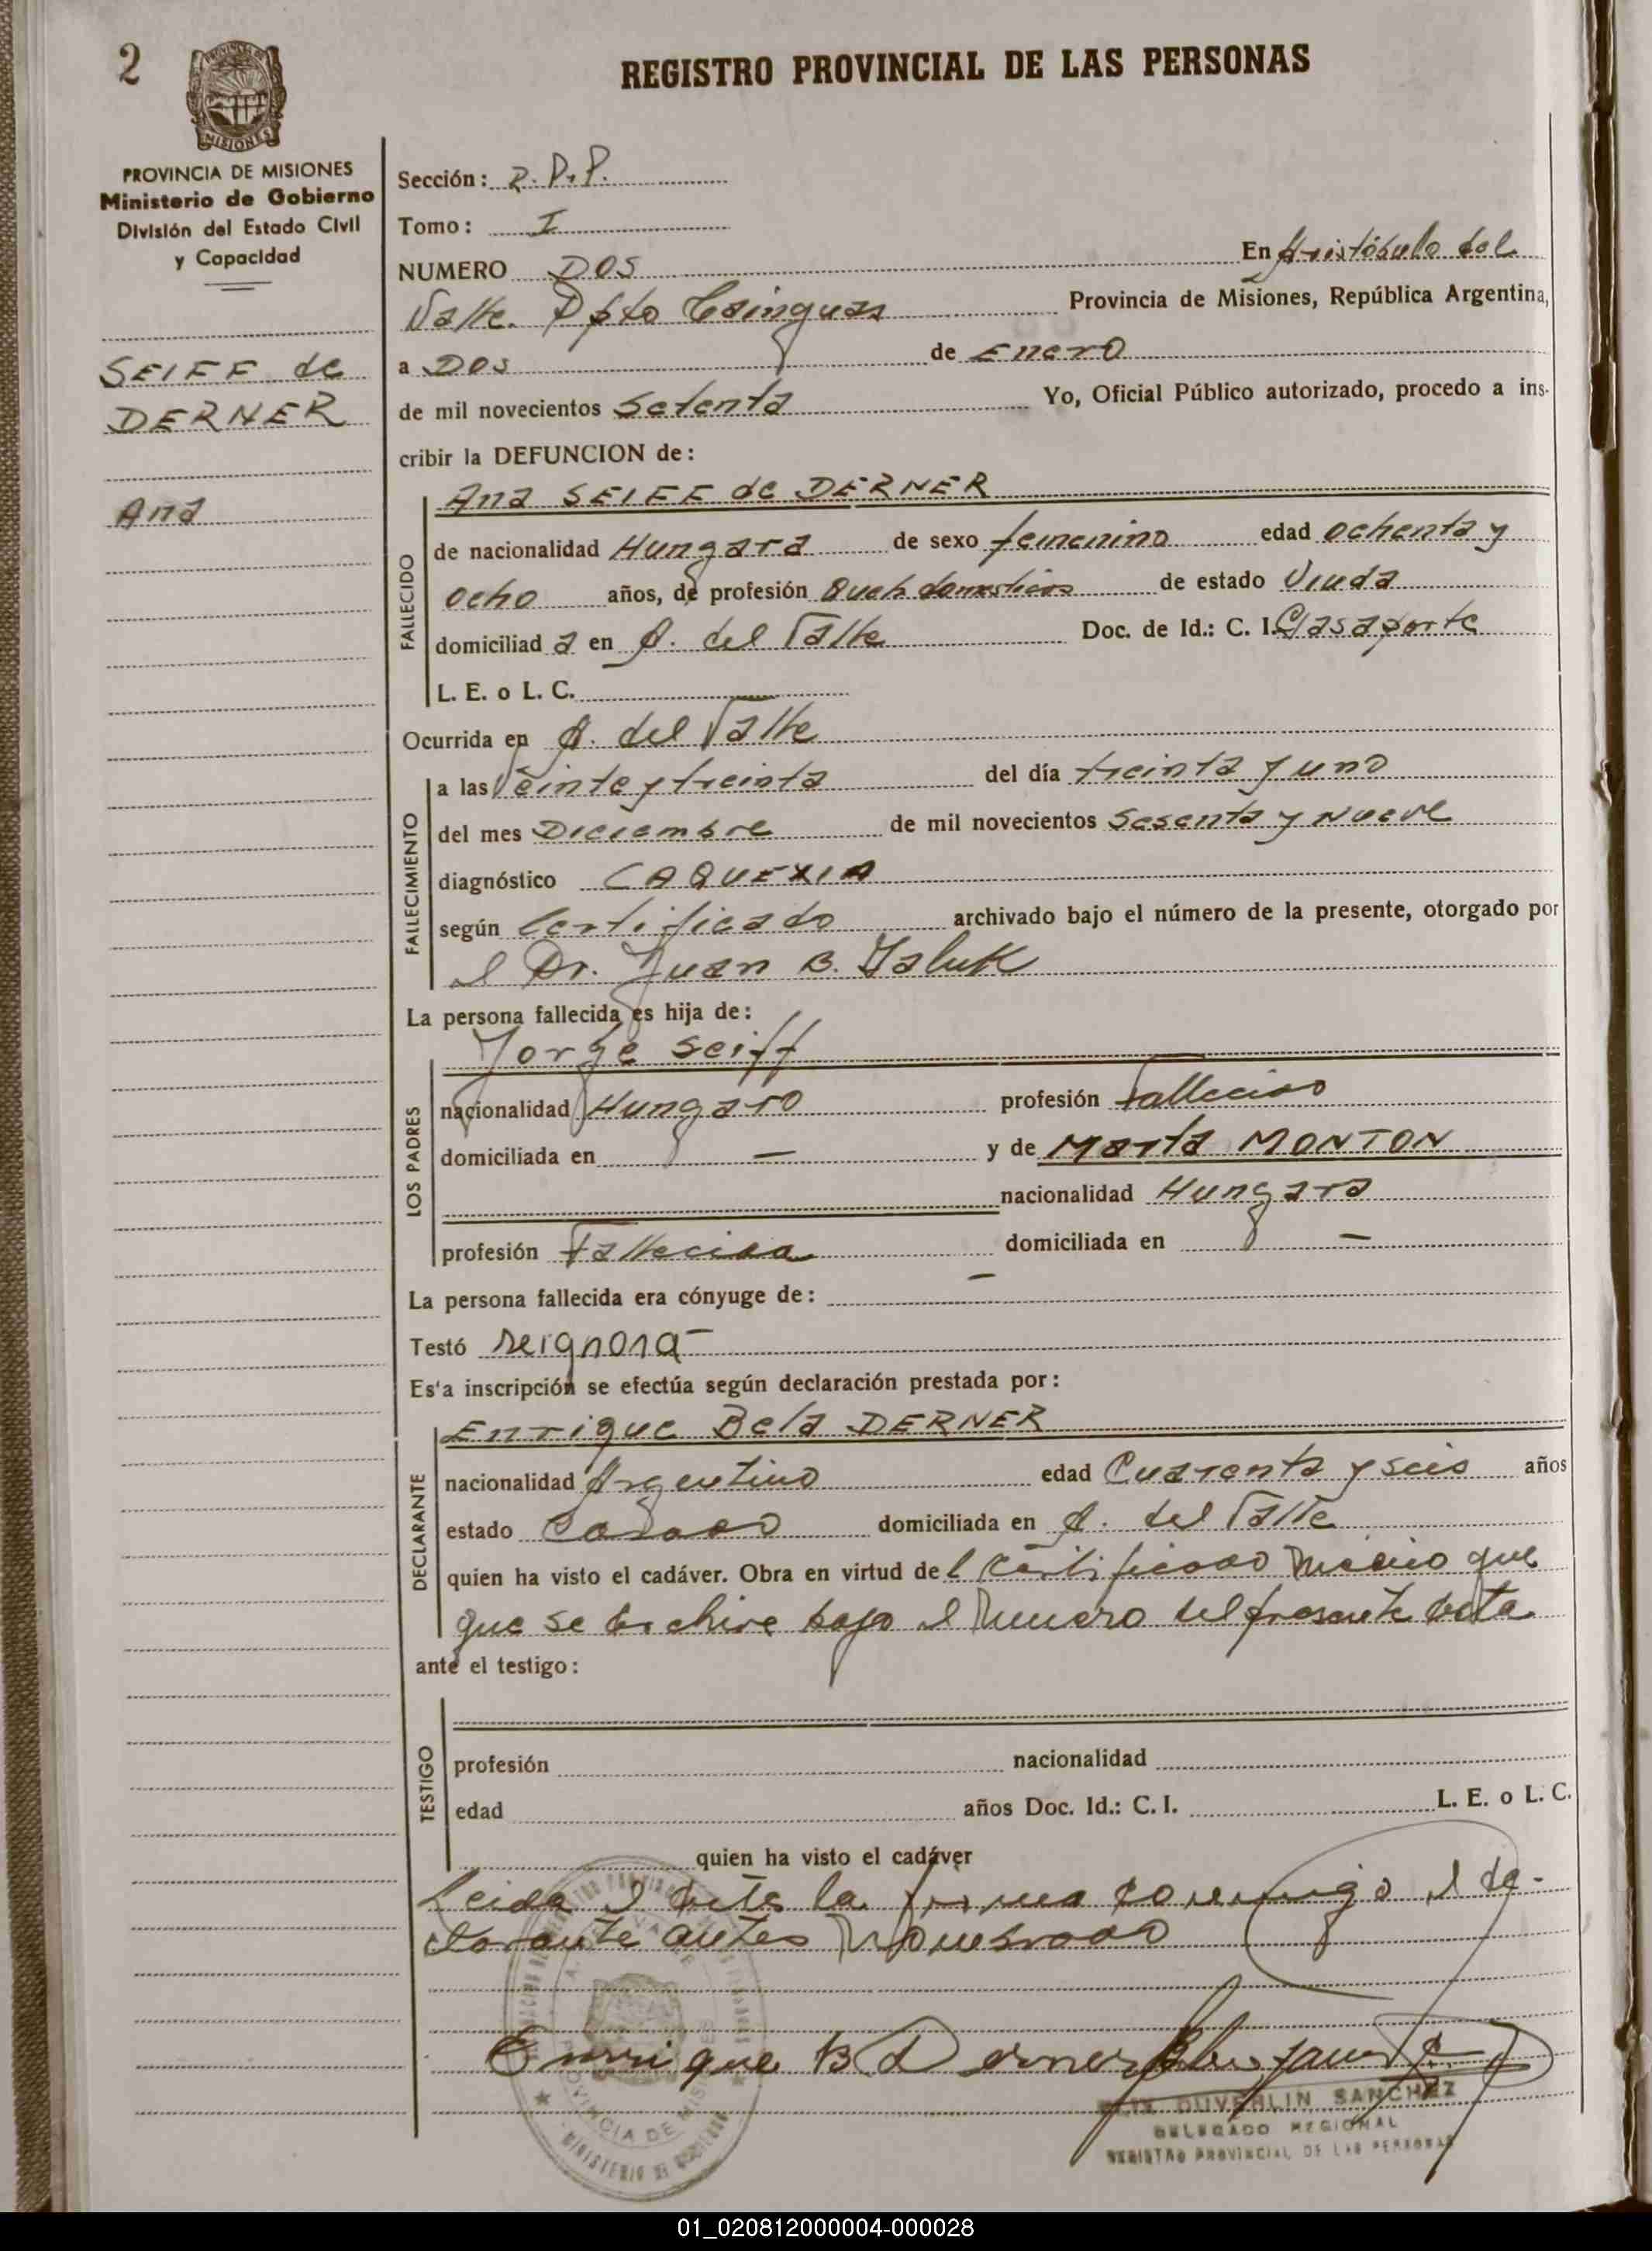 2
REGISTRO PROVINCIAL DE LAS PERSONAS
PROVINCIA DE MISIONES
Ministerio de Gobierno
División del Estado Civil
y Capacidad
SEIFF de
DERNER
Ana
Sección: R. P. P.
Tomo: I
NUMERO DOS En Aristóbulo del
Valle. Dpto Cainguas Provincia de Misiones, República Argentina,
a DOS de Enero
de mil novecientos Setenta Yo, Oficial Público autorizado, procedo a ins-
cribir la DEFUNCION de:
Ana SEIFF de DERNER
FALLECIDO
de nacionalidad Hungara de sexo femenino edad ochenta y
ocho años, de profesión Queh domesticos de estado Viuda
domiciliad a en A. del Valle Doc. de Id.: C. I. Pasaporte
L. E. o L. C. —
Ocurrida en A. del Valle
FALLECIMIENTO
a las Veinte y treinta del día treinta y uno
del mes Diciembre de mil novecientos Sesenta y Nueve
diagnóstico CAQUEXIA
según Certificado archivado bajo el número de la presente, otorgado por
el Dr. Juan B.
La persona fallecida es hija de:
Jorge Seiff
LOS PADRES
nacionalidad Hungaro profesión Fallecido
domiciliada en — y de Marta MONTON
nacionalidad Hungara
profesión Fallecida domiciliada en —
La persona fallecida era cónyuge de: —
Testó se ignora -
Es'a inscripción se efectúa según declaración prestada por:
Enrique Bela DERNER
DECLARANTE
nacionalidad Argentino edad Cuarenta y seis años
estado Casado domiciliada en A. del Valle
quien ha visto el cadáver. Obra en virtud de l Certificado Médico que
que se Archiva bajo el Número del presente acta
ante el testigo:
TESTIGO
profesión nacionalidad
edad años Doc. Id.: C. I. L. E. o L. C.
quien ha visto el cadáver
Leida el acta la firma conmigo el de-
clarante antes Nombrado
Enrique B Derner
DUVERLIN SANCHEZ
DELEGADO REGIONAL
REGISTRO PROVINCIAL DE LAS PERSONAS
01_020812000004-000028